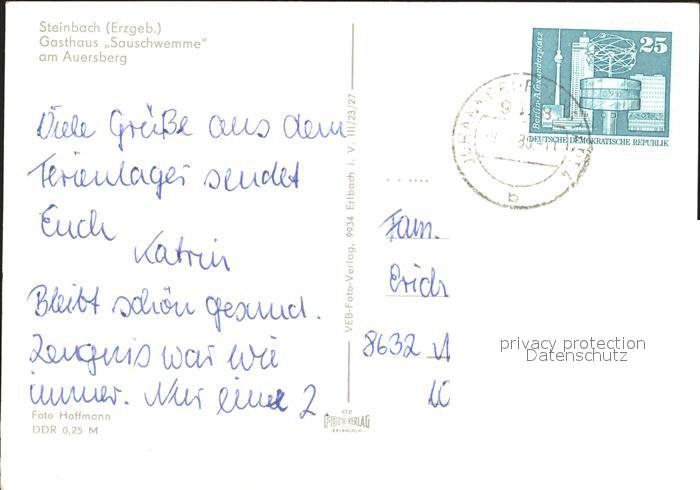 Steinbach (Erzgeb.)
Gasthaus „Sauschwemme"
am Auersberg
Viele Grüße aus dem
Ferienlager sendet
Euch
Katrin
Bleibt schön gesund.
Zeugnis war wie
immer. Nur eine 2.
Foto Hoffmann
DDR 0,25 M
VEB-Foto-Verlag, 9934 Erlbach I. V. III/23/27
FOTO-VERLAG
ERLBACH/V.
Berlin-Alexanderplatz
25
DEUTSCHE DEMOKRATISCHE REPUBLIK
b
Fam.
Erich
8632
privacy protection
Datenschutz